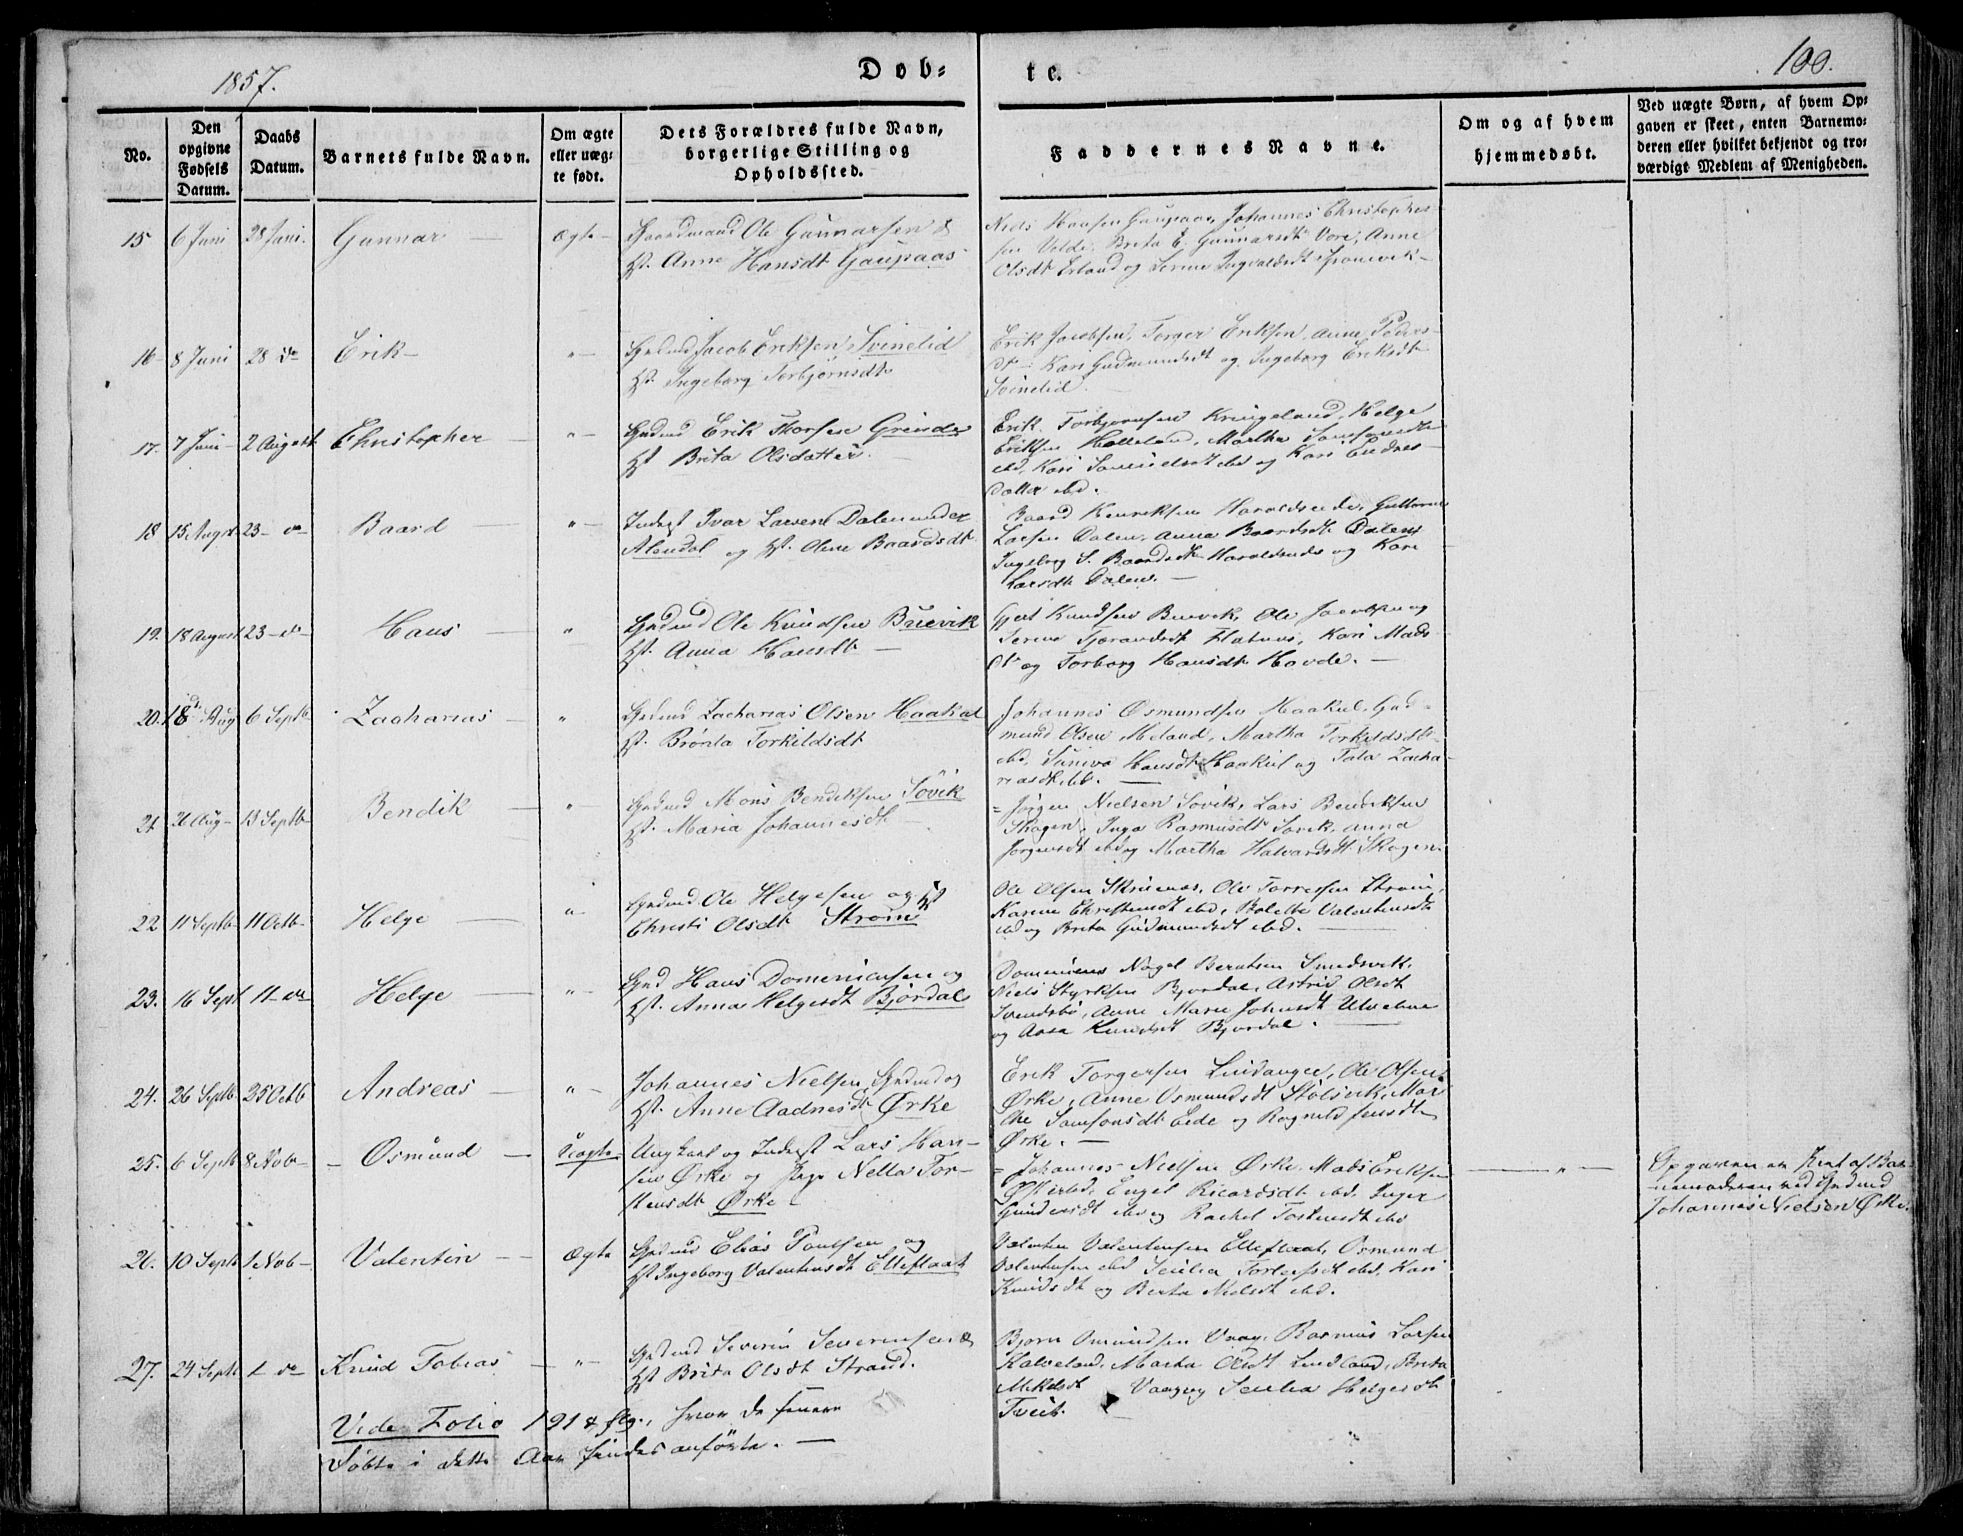 1857.
Døb=
te.
100.
No.
Den
opgivne
Fødsels
Datum.
Daabs
Datum.
Barnets fulde Navn.
Om ægte
eller uæg=
te født.
Dets Forældres fulde Navn,
borgerlige Stilling og
Opholdssted.
Faddernes Navne.
Om og af hvem
hjemmedøbt.
Ved uægte Børn, af hvem Op=
gaven er skeet, enten Barnemo=
deren eller hvilket bekjendt og tro=
værdigt Medlem af Menigheden.
15 6 Juni 28 Juni. Gunnar — Ægte — Gaardmand Ole Gunnarsen &
Hst. Anne Hansdt Gaupaas
Niels Hansen Gaupaas, Johannes Christopher-
sen Velde, Brita E. Gunnarsdt Vore, Anne
Olsdt Erland og Serine Ingvaldsdt
16 8 Juni 28 do Erik — "— Grdmd Jacob Eriksen Svinelid
Hst. Ingeborg Torbjørnsdt
Erik Jacobsen, Torger Eriksen, Anne Peders-
dt — Kari Gudmundsdt og Ingeborg Eriksdt
Svinelid
17. 7 Juni — 2 August Christopher — "— Grdmd Erik Thorsen Grinde
Hst Brita Olsdatter.
Erik Torbjørnsen Kringeland, Helge
Eriksen Halleland, Martha Samsonsdt
ibd, Kari Samuelsdt ibd og Kari Endres-
datter ibd.
18 15 Augst 23 — do Baard "— Inderst Ivar Larsen Dalen under
Alendal og Hst. Oline Baardsdt
Baard Henriksen Haraldseide, Guttorm
Larsen Dalen, Anna Baardsdt Dalen,
Ingeborg S. Baardsdt Haraldseide og Kari
Larsdt Dalen. —
19. 18 August 23 — do — Hans — " Grdmd Ole Knudsen Buevik
Hst. Anna Hansdt —
Gjert Knudsen Buevik, Ole Jacobsen og
Serine Tjerandsdt Flatnes, Kari Mads-
dt og Torborg Hansdt Hovde. —
20. 18de Aug 6 Septb Zacharias — " Grdmd Zacharias Olsen Haakul
Hst. Brønla Torkildsdt
Johannes Osmundsen Haakul, Gud-
mund Olsen Meland, Martha Torkildsdt
ibd. Suniva Hansdt Haakul og Tala Zacha-
riasdt ibd. —
21 26 Aug — 13 Septb Bendik — "— Grdmd Mons Bendiksen Søvik
Hst. Maria Johannesdt
= Jørgen Nielsen Søvik, Lars Bendiksen
Skogen, Inga Rasmusdt Søvik, Anna
Jørgensdt ibd og Martha Halvardsdt Skogen.
22 11 Septb 11 Octb — Helge — "— Grdmd Ole Helgesen og Hst
Christi Olsdt Strøm
Ole Olsen Skruenes, Ole Torressen Strøm,
Karine Christensdt ibd, Bolette Valentinsdt
ibd og Brita Gudmundsdt ibd. —
23. 16 Sept 11 — do Helge — "— Grmd Hans Domenicusen og
Hst. Anna Helgesdt Bjørdal
Domenicus Nagel Berntsen Smedsvik,
Niels Styrksen Bjordal, Astrid Olsdt
Svendsbø, Anne Marie Johnsdt Utvelane
og Aasa Knudsdt Bjordal. —
24. 26 Septb 25 Octb Andreas — "— Johannes Nielsen, Grdmd og
Hst. Anne Aadnesdt Ørke
Erik Torgersen Lindanger, Ole Olsen
Ørke, Anne Osmundsdt Stølsvik, Mar-
the Samsonsdt Eide og Rognild Jensdt
Ørke. —
25. 6 Septb 8 Nobr — Osmund — Uægte Ungkarl og Inderst Lars Han-
sen Ørke og Pige Nella Tor-
stensdt Ørke
= Johannes Nielsen Ørke, Mads Eriksen
Østerbø, Engel Ricardsdt ibd. Inger
Gundersdt ibd og Rachel Tostensdt ibd
— " —
Opgaven er skeet af Bar-
nemoderen ved Grdmd
Johannes Nielsen Ørke.
26. 10 Septb 1 Nob — Valentin — Ægte Grdmd Elias Poulsen og
Hst Ingeborg Valentinsdt Elleflaat
Valentin Valentinsen Elleflaat, Osmund
Valentinsen ibd Sesilia Torleifsdt ibd. Kari
Knudsdt og Berta Nielsdt ibd.
27. 24 Septb 1 — do Knud Tobias — "— Grdmd Severin Severinsen &
Hst Brita Olsdt Strand.
Bjørn Omundsen Vaag, Rasmus Larsen
Kalveland, Marta Olsdt Lindland, Brita
Mikelsdt Vaag og Sesilia Helgesdt
Tveit. —
Vide Folio 191 & flg., hvor de senere
Døbte i dette Aar findes anførte. —